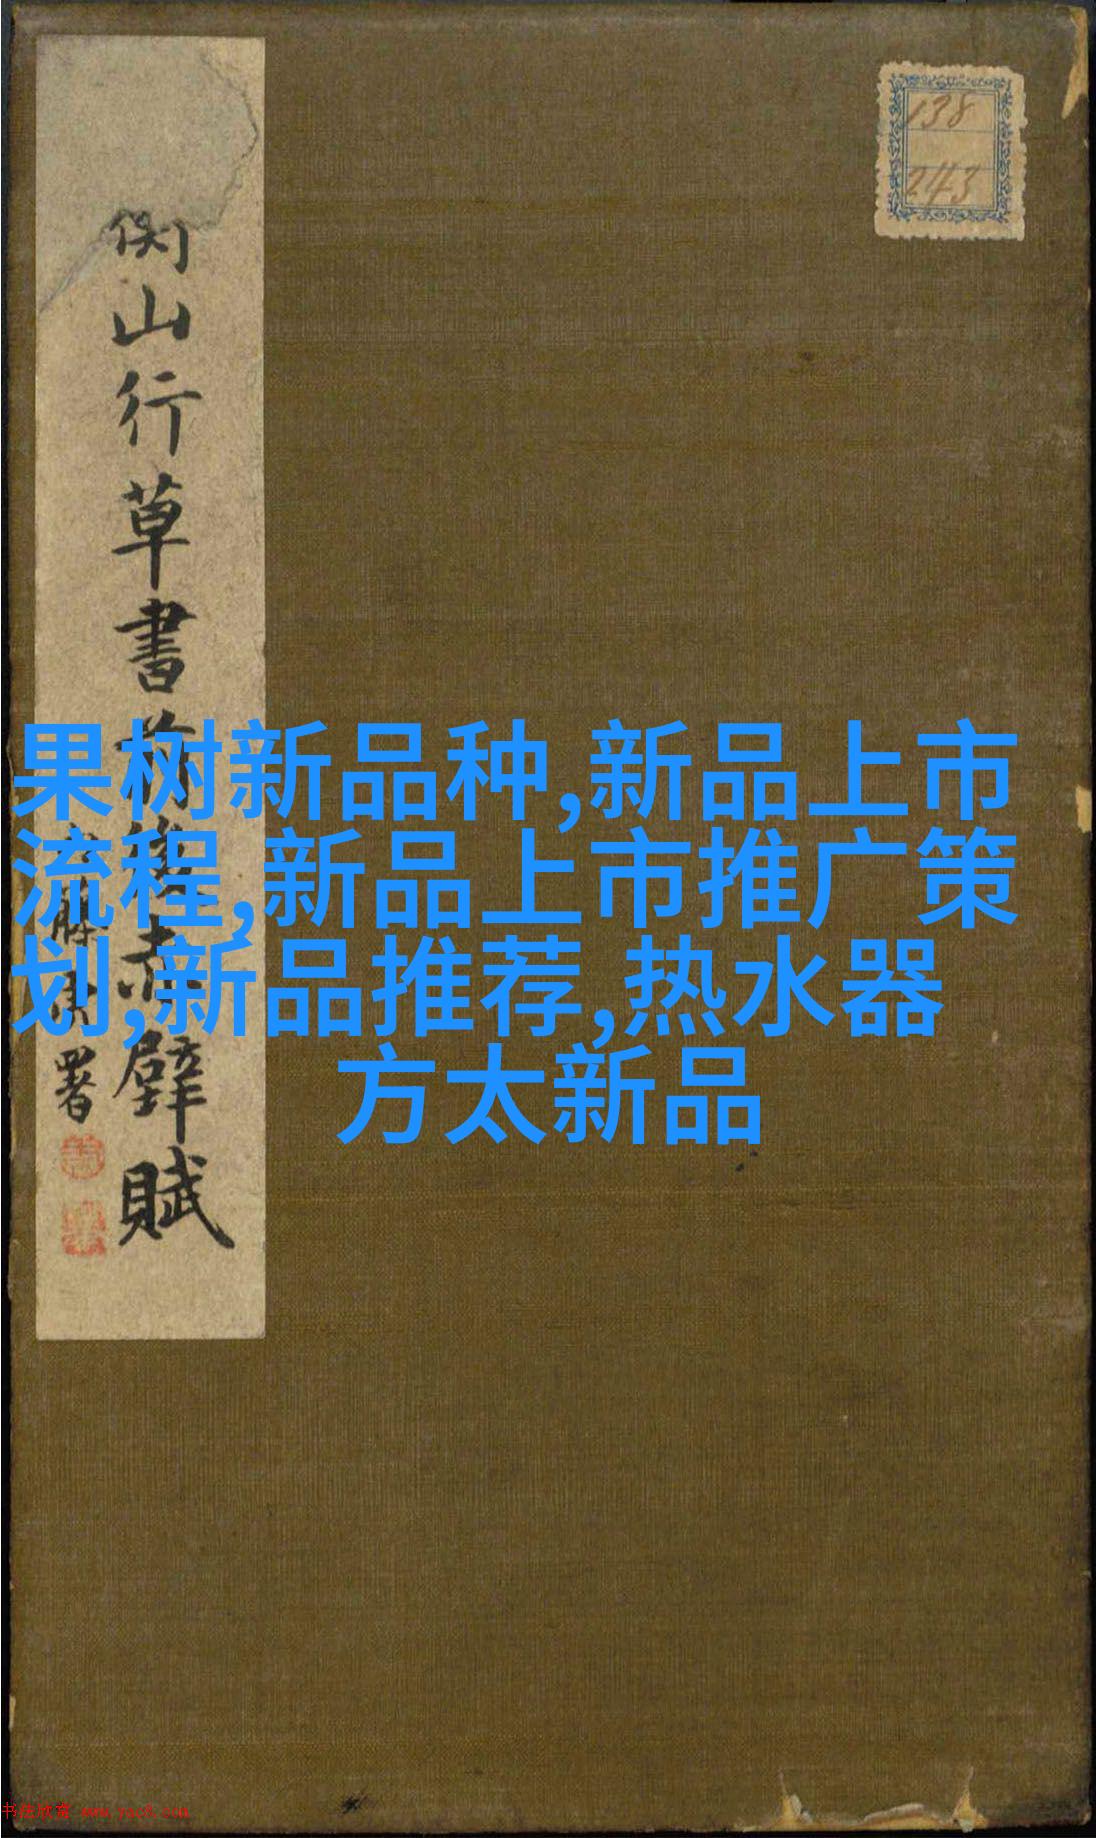 138
243
山行草書前後赤壁賦
署
果树新品种,新品上市
流程,新品上市推广策
划,新品推荐,热水器
方太新品
书法欣赏 www.yac8.com